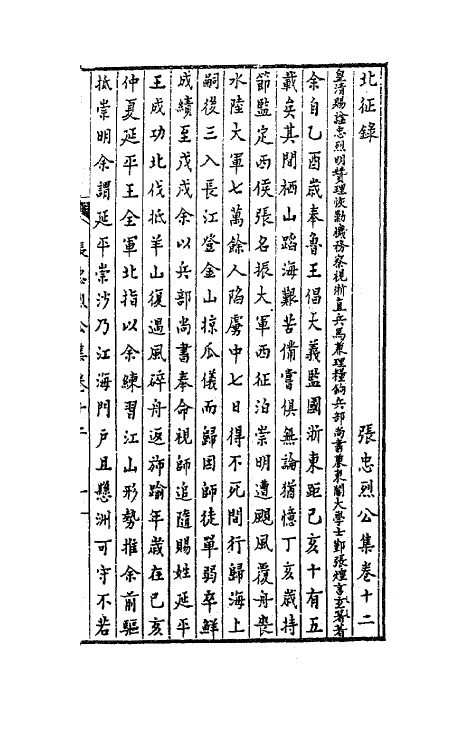 北征錄　張忠烈公集卷十二
皇清賜諡忠烈明贊理恢勦機務察視浙直兵馬兼理糧餉兵部尚書兼東閣大學士鄞張煌言玄箸著
余自乙酉歲奉魯王倡大義監國浙東距己亥十有五
載矣其間栖山蹈海艱苦備嘗俱無論猶憶丁亥歲持
節監定西侯張名振大軍西征泊崇明遭颶風覆舟喪
水陸大軍七萬餘人陷虜中七日得不死間行歸海上
嗣後三入長江登金山掠瓜儀而歸因師徒單弱卒鮮
成績至戊戌余以兵部尚書奉命視師追隨賜姓延平
王成功北伐抵羊山復遇風碎舟返斾踰年歲在己亥
仲夏延平王全軍北指以余練習江山形勢推余前驅
抵崇明余謂延平崇沙乃江海門戶且懸洲可守不若
張忠烈公集卷十二　一